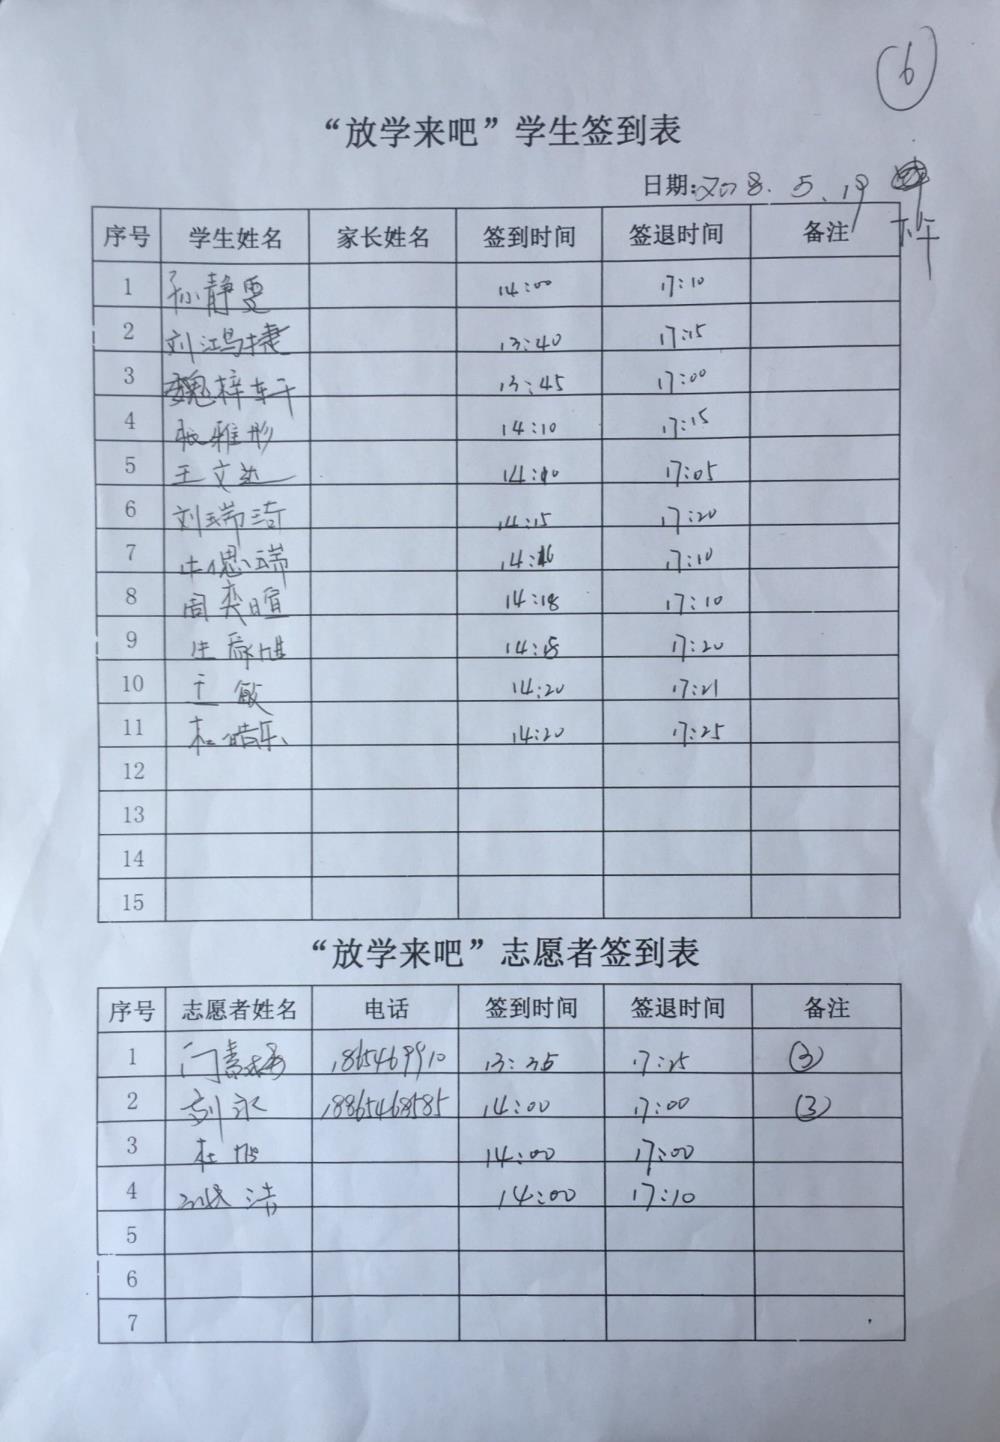 6
“放学来吧”学生签到表
日期:2018.5.19 下午
序号 学生姓名 家长姓名 签到时间 签退时间 备注
1 孙静雯 14:00 17:10
2 刘鸿捷 13:40 17:15
3 魏梓轩 13:45 17:00
4 张雅彤 14:10 17:15
5 王文 14:10 17:05
6 刘瑞琦 14:15 17:20
7 牛偲瑞 14:16 17:10
8 周奕暄 14:18 17:10
9 14:18 17:20
10 王敏 14:20 17:21
11 杜皓乐 14:20 17:25
12
13
14
15
“放学来吧”志愿者签到表
序号 志愿者姓名 电话 签到时间 签退时间 备注
1 门 13:35 17:25 ③
2 刘永 18865468585 14:00 17:00 ③
3 杜 14:00 17:00
4 洁 14:00 17:10
5
6
7